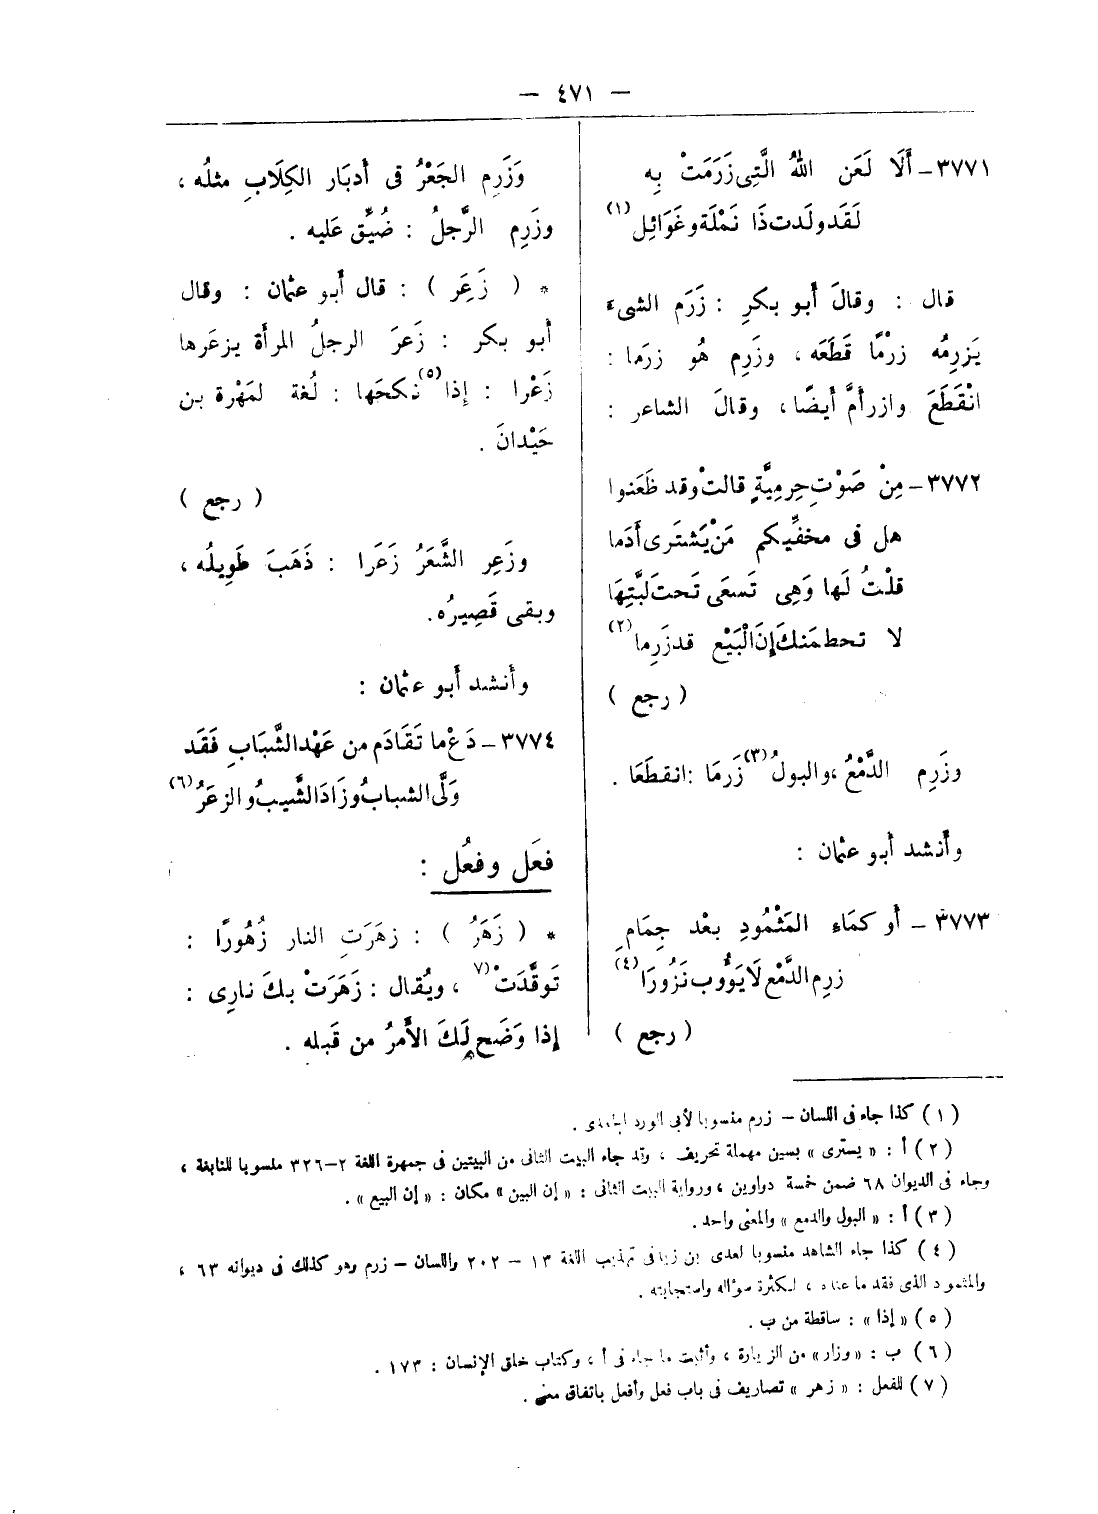 — ٤٧١ —
٣٧٧١ – أَلَا لَعَن اللهُ الَّتِى زَرَمَتْ بِه
لَقَد ولَدت ذَا نَمْلَة وغَوَائِل (١)
قال : وقالَ أَبو بكرٍ : زَرَم الشىء
يَزرِمُه زرْمًا قَطَعَه ، وزَرِم هُو زرَما :
انْقَطَعَ وازرأَمَّ أَيضًا ، وقالَ الشاعر :
٣٧٧٢ – مِنْ صَوْتِ حِرمِيَّةٍ قالتْ وقد ظَعَنوا
هل فى مخفِّيكم مَنْ يَشترى أَدَما
قلْتُ لَها وَهِى تَسعَى تَحتَ لَبَّتِهَا
لا تحطمَنكَ إِنَ الْبَيْع قد زَرِما (٢)
( رجع )
وزَرِم الدَّمْعُ ، والبولُ (٣) زَرمَا : انقطَعَا .
وأَنشد أَبو عثمان :
٣٧٧٣ – أَو كمَاء المَثْمُودِ بعْد جِمَامِ
زرِم الدَّمْع لَا يَؤُوب نَزُورَا (٤)
( رجع )
وَزَرِم الجَعْرُ فى أَدبَار الكِلَابِ مثلُه ،
وزَرِم الرَّجلُ : ضُيِّق عَليه .
* ( زَعَر ) : قال أَبو عثمان : وقال
أَبو بكر : زَعرَ الرجلُ المرأَة يزعَرها
زَعْرا : إِذا (٥) نكحَها : لُغة لمَهْرة بن
حَيْدانَ .
( رجع )
وزَعِر الشَّعَرُ زَعَرا : ذَهَبَ طَوِيلُه ،
وبقى قَصِيرُه .
وأَنشد أَبو عثمان :
٣٧٧٤ – دَعْ ما تَقَادَم من عَهْد الشَّبَابِ فَقَد
وَلَّى الشبابُ وزَادَ الشَّيبُ والزعَرُ (٦)
فعَل وفعُل :
* ( زَهَرُ ) : زهَرَتِ النار زُهُورًا :
تَوقَّدَتْ (٧) ، ويُقال : زَهَرَتْ بكَ نارِى :
إِذا وَضَح لَكَ الأَمرُ من قَبله .
( ١ ) كذا جاء فى اللسان – زرم منسوبا لأبى الورد الجعدى .
( ٢ ) أ : « يسترى » بسين مهملة تحريف ، وقد جاء البيت الثانى من البيتين فى جمهرة اللغة ٢–٣٢٦ منسوبا للنابغة ،
وجاء فى الديوان ٦٨ ضمن خمسة دواوين ، ورواية البيت الثانى : « إن البين » مكان : « إن البيع » .
( ٣ ) أ : « البول والدمع » والمعنى واحد .
( ٤ ) كذا جاء الشاهد منسوبا لعدى بن زيد فى تهذيب اللغة ١٣ – ٢٠٢ واللسان – زرم وهو كذلك فى ديوانه ٦٣ ،
والمثمود الذى فقد ما عنده ، لكثرة سؤاله واستجابته .
( ٥ ) « إذا » : ساقطة من ب .
( ٦ ) ب : « وزار » من الزيارة ، وأثبت ما جاء فى أ ، وكتاب خلق الإنسان : ١٧٣ .
( ٧ ) للفعل : « زهر » تصاريف فى باب فعل وأفعل باتفاق معنى .